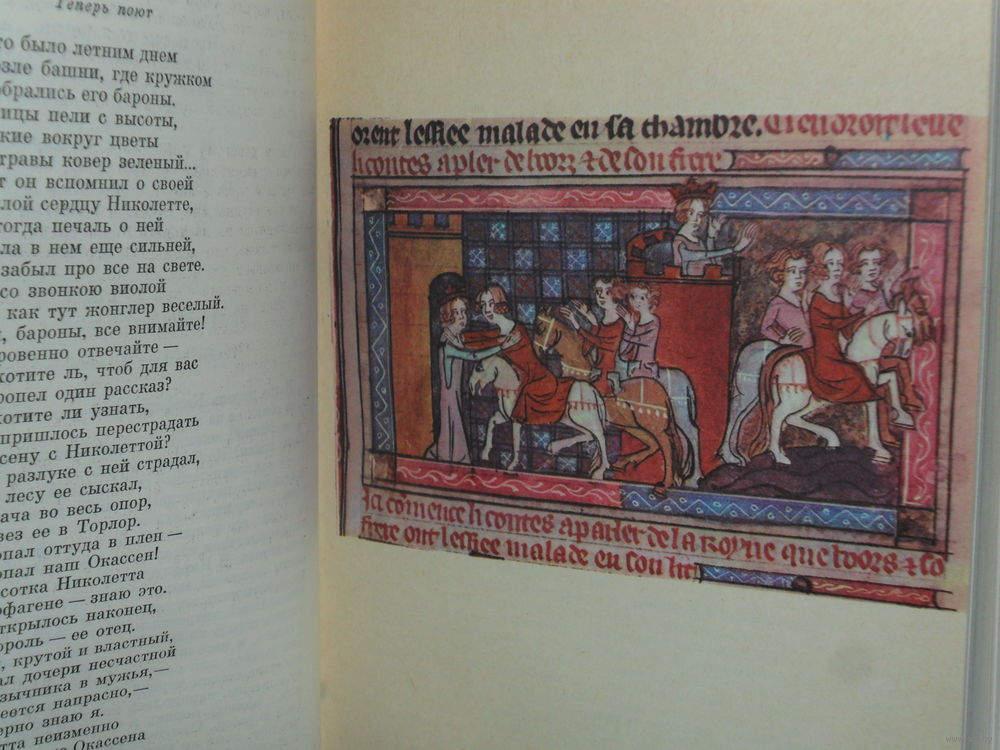 Теперь поют
то было летним днем
зле башни, где кружком
обрались его бароны.
ицы пели с высоты,
кие вокруг цветы
травы ковер зеленый...
т он вспомнил о своей
лой сердцу Николетте,
тогда печаль о ней
ла в нем еще сильней,
забыл про все на свете.
со звонкою виолой
как тут жонглер веселый.
, бароны, все внимайте!
ровенно отвечайте —
хотите ль, чтоб для вас
ропел один рассказ?
хотите ли узнать,
пришлось перестрадать
сену с Николеттой?
разлуке с ней страдал,
лесу ее сыскал,
ача во весь опор,
вез ее в Торлор.
опал оттуда в плен —
опал наш Окассен!
сотка Николетта
рфагене — знаю это.
ткрылось наконец,
ороль — ее отец.
, крутой и властный,
ал дочери несчастной
зычника в мужья, —
еется напрасно, —
ерно знаю я.
тта неизменно
Окассена
orent lessiee malade en sa chambre. Ci endroit leisse
li contes a pler de boorz & de son frere
Ja comence li contes a parler de la royne que boors & so
frere ont lessiee malade en son lit